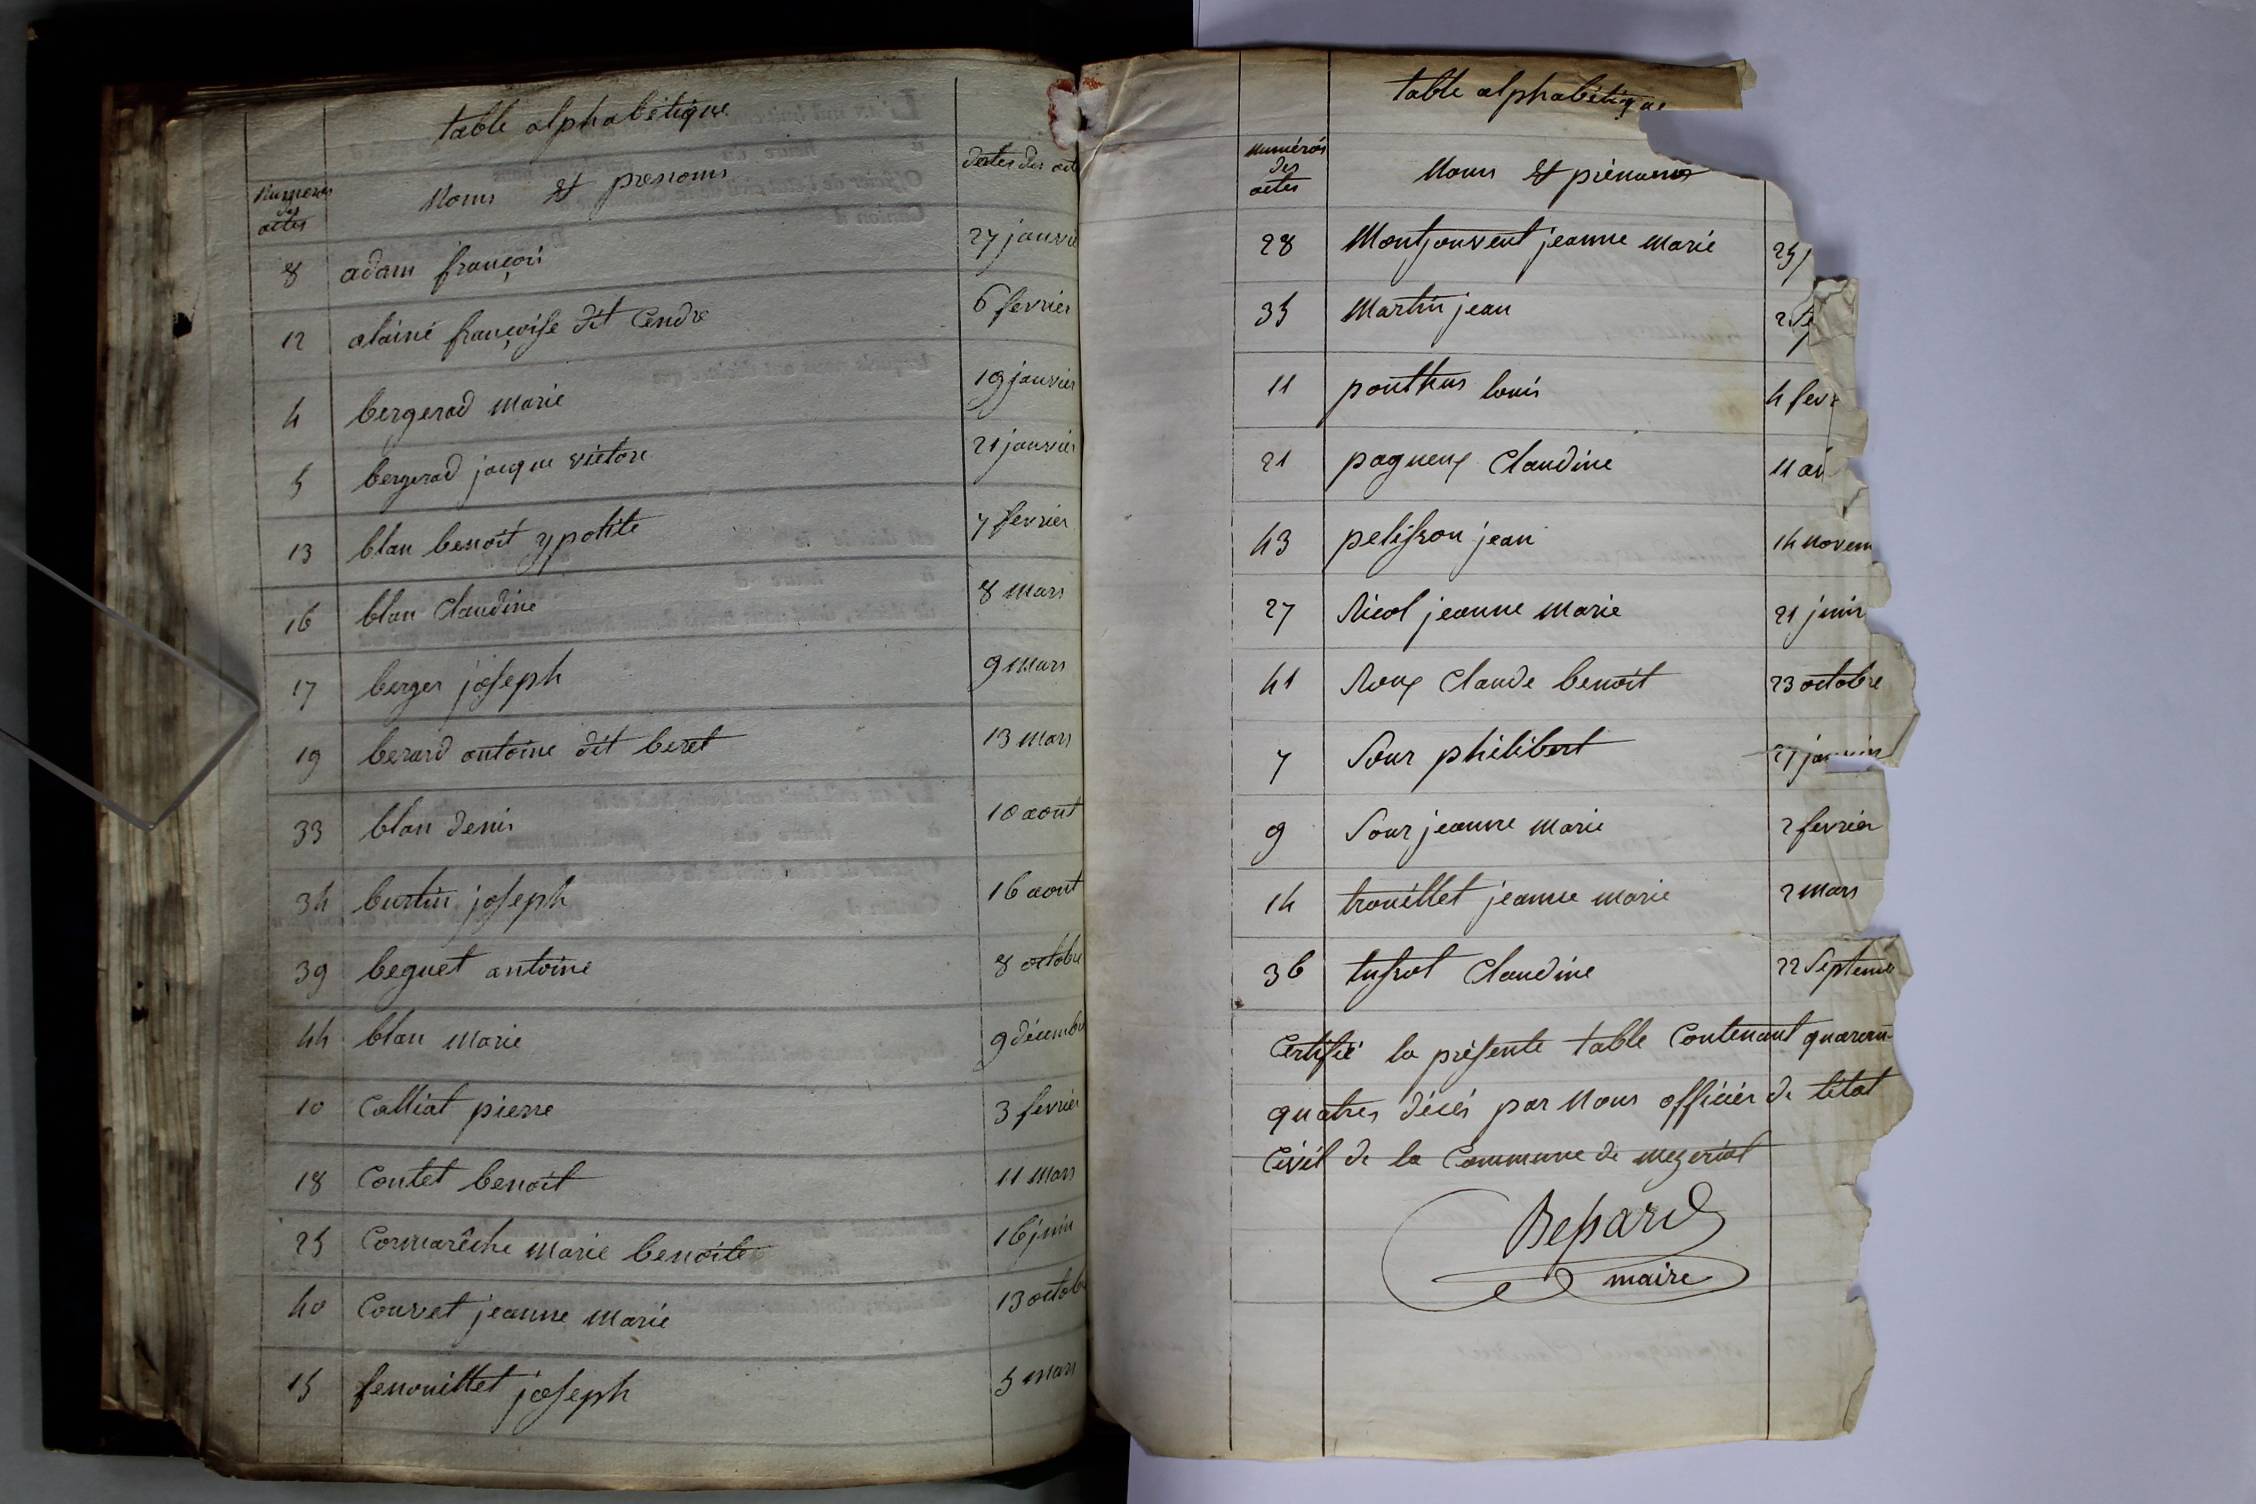 table alphabétique
Numeros des actes Noms et prenoms dates des act
8 adam françois 27 janvie
12 alainé françoise dit Cendre 6 fevrier
4 bergerad marie 19 janvier
5 bergerad jacque victore 21 janvier
13 blan benoit ypolite 7 fevrier
16 blan Claudine 8 mars
17 berger joseph 9 mars
19 berard antoine dit beret 13 mars
33 blan denis 10 aout
34 burtin joseph 16 aout
39 beguet antoine 8 octobre
44 blan marie 9 décembre
10 Calliat pierre 3 fevrier
18 Contet benoit 11 mars
25 Cormarêche marie benoite 16 juin
40 Courvet jeanne marie 13 octobr
15 fenouillet joseph 5 mars
table alphabétique
Numéros des actes Noms et prénoms
28 Montjouvent jeanne marie 25
35 Martin jean 2 Se
11 ponthus louis 4 fevr
21 pagneux Claudine 11 av
43 pelisson jean 14 novem
27 Nicol jeanne marie 21 juin
41 Roux Claude benoit 23 octobre
7 Sour philibert 27 janvier
9 Sour jeanne marie 2 fevrier
14 trouillet jeanne marie 2 mars
36 tussot Claudine 22 Septem
Certifié la présente table Contenant quaran-
quatres décés par Nous officier de létat
Civil de la Commune de mezeriat
Bessard
maire